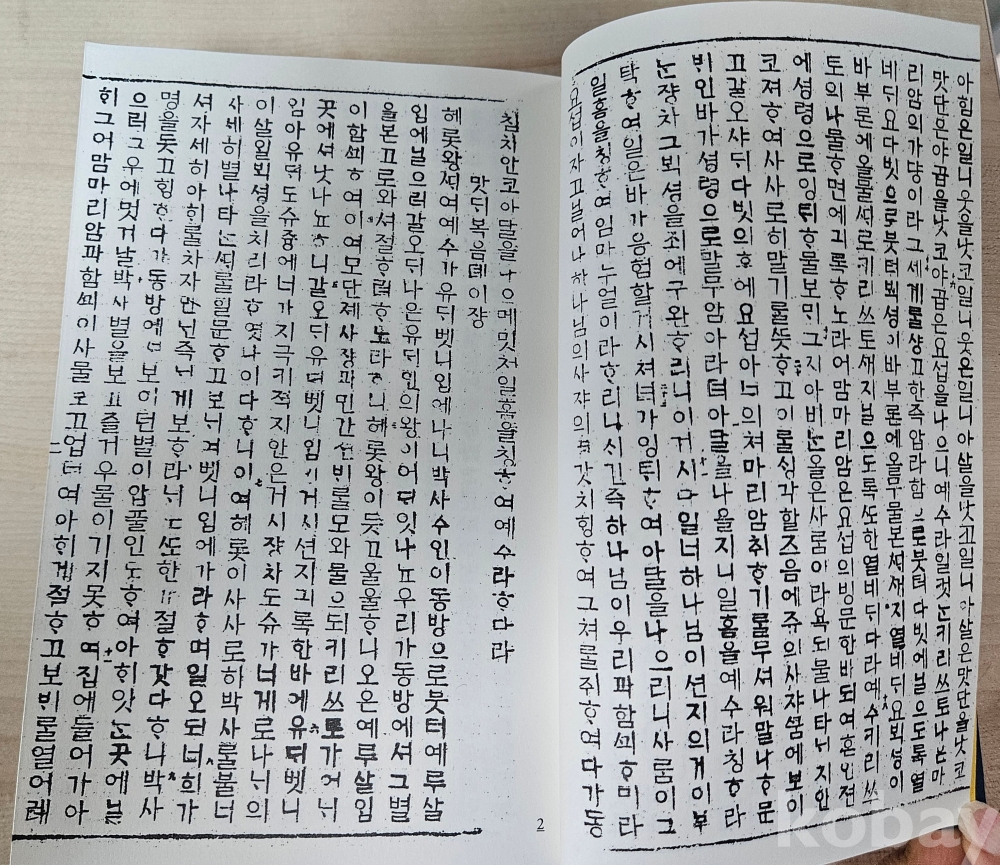 아힘은일니웃을낫코일니웃은일니아살을낫끄일니아살은맛단을낫코
맛단은야곱을낫코야곱은요섭을나으니예수라일컷는키리쓰토나는마
리암의가댱이라그세계롤샹끄한즉압라함으로붓터다빗에닐으도록열
네듸요다빗으로붓터뵉셩이바부론에올무물본셔새지열네듸요뵉셩이
바부론에올물셔로키리쓰토새지닐으도록쏘한열네듸다라예수키리쓰
토의나물ᄒ면에긔록ᄒ노라어맘마리암은요섭의빙문한바되여혼인젼
에셩령으로잉틔ᄒ물보믹그지아비눈올은사룸이라욕되물나타닉지안
코져ᄒ여사사로히말기롤뜻ᄒ고이롤싱각할즈음에쥬의사쟈꿈에보이
끄갈오샤듸다빗의후에요섭아너의쳐마리암취ᄒ기롤무셔워말나ᄒ문
빈인바가셩령으로말무암아라뎌아달을나을지니일홈을예수라칭ᄒ라
눈쟝차그뵉셩을죄에구완ᄒ리니이거시다일너하나님이션지의게이부
탁ᄒ여일은바가응험할거시쳐녀가잉틔ᄒ여아달을나으리니사룸이그
일홈을칭ᄒ여임마누얼이라ᄒ리니시긴즉하나님이우리과함쐬ᄒ미라
요섭이자끄닐어나하나님의사쟈의갓치힝ᄒ여그쳐롤쥐ᄒ여다가동
침치안코아달을나으메밋쳐일홈을칭ᄒ여예수라ᄒ다라
맛듸복음뎨이쟝
헤롯왕셔여예수가유듸벳니임에나니박사수인이동방으로붓터예루살
임에닐으러갈오듸나은유듸인의왕이어듸잇나뇨우리가동방에셔그별
을본끄로와셔졀ᄒ려ᄒ노라ᄒ니헤롯왕이듯끄울울ᄒ나오온예루살임
이함쐬ᄒ여이여모단졔사쟝과민간션빅롤모와물으되키리쓰토가어닉
곳에셔낫나뇨ᄒ니갈오듸유듸벳니임이거시션지긔록한바에유듸벳니
임아유듸도슈즁에너가지극키젹지안은거시쟝차도슈가너게로나닉의
이살일뵉셩을치리라ᄒ엿나이다ᄒ니이여헤롯이사사로히박사롤불너
사세히별나타난셔롤힐문ᄒ끄보닉여벳니임에가라ᄒ며일오되너희가
셔자세히아히롤차자만난즉닉게보ᄒ라닉도또한가졀ᄒ갓다ᄒ니박사
명을듯끄힝ᄒ다가동방에보이던별이암풀인도ᄒ여아히잇는곳에닐
으러그우에멋거날박사별을보고즐거우물이기지못ᄒ여집에들어가아
히그어맘마리암과함쐬이사물로끄업더여아히게졀ᄒ끄보빅롤열어례
2
kobay